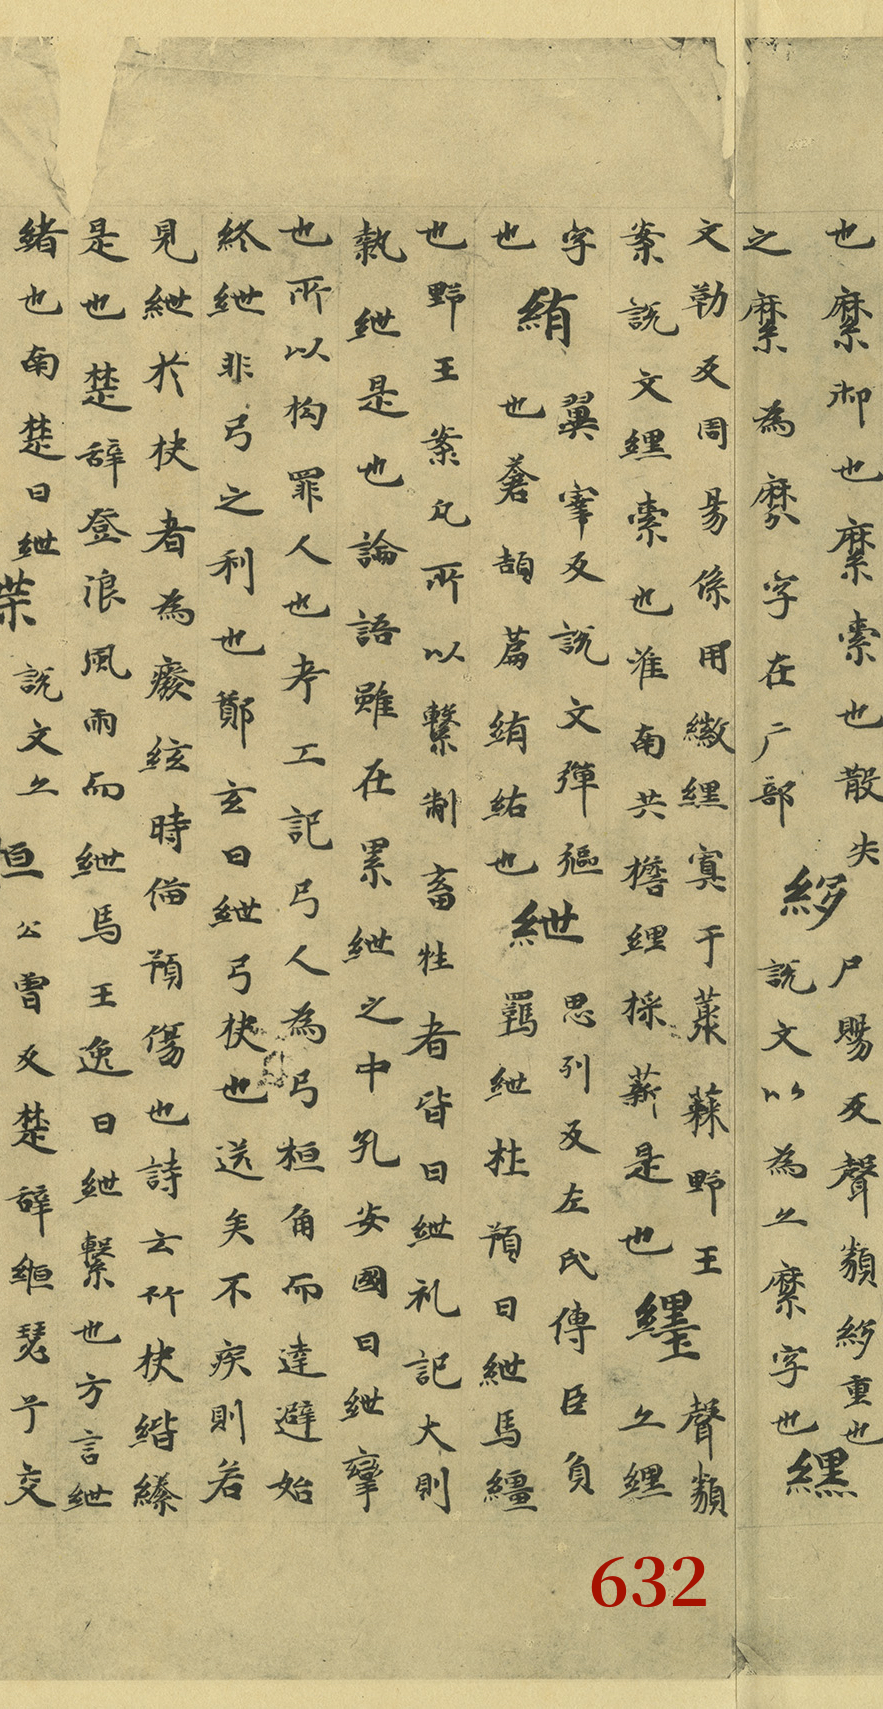 也縻御也縻索也散失
之縻為縻字在广部
𥿫
尸賜反聲類𥿫重也
說文以為亦縻字也
纆
文勒反周易係用徽纆寘于藂蕀野王
案說文纆索也淮南共檐纆採薪是也
聲類
亦纆
字
也
絠
翼宰反說文彈彄
也蒼頡篇絠結也
紲
思列反左氏傳臣負
羈紲杜預曰紲馬繮
也野王案凡所以繫制畜牲者皆曰紲礼記犬則
執紲是也論語雖在累紲之中孔安國曰紲攣
也所以拘罪人也考工記弓人為弓桓角而達避始
終紲非弓之利也鄭玄曰紲弓柲也送矢不疾則若
見紲於柲者為癈絃時備預傷也詩云竹柲緄縢
是也楚辞登浪風雨而紲馬王逸曰紲繫也方言紲
緒也南楚曰紲
說文亦
公曾反楚辞縆瑟兮交
632